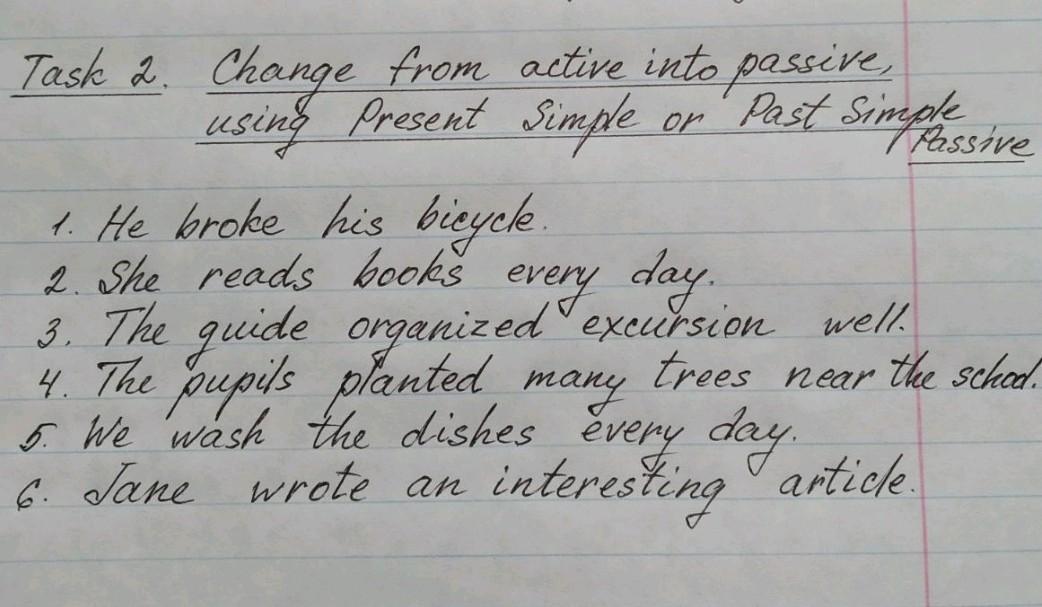 Task 2. Change from active into passive,
using Present Simple or Past Simple
Passive
1. He broke his bicycle.
2. She reads books every day.
3. The guide organized excursion well.
4. The pupils planted many trees near the school.
5. We wash the dishes every day.
6. Jane wrote an interesting article.